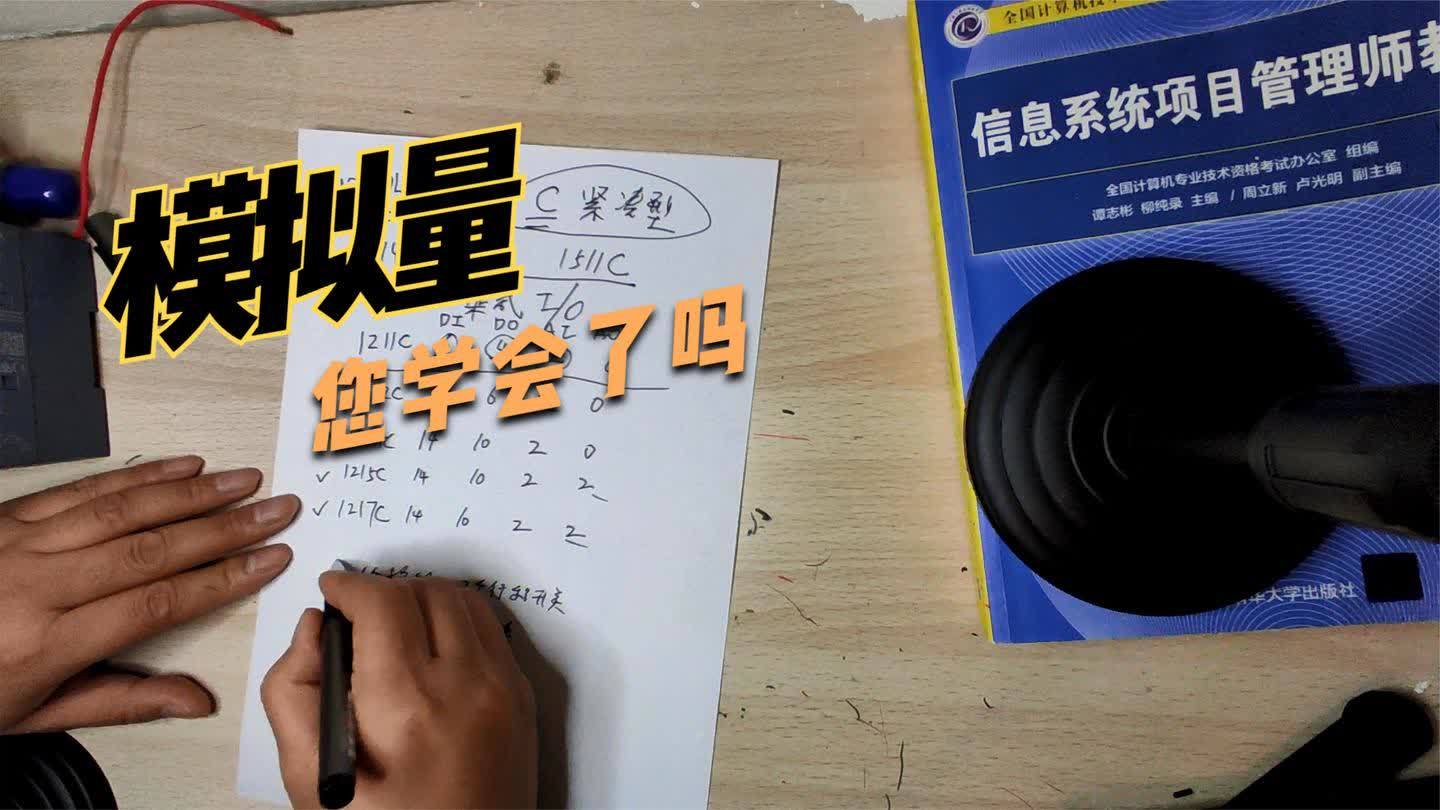 模拟量
您学会了吗
C 紧凑型
1511C
I/O
DI DO
1211C
0
14 10 2 0
✓ 1215C 14 10 2 2
✓ 1217C 14 10 2 2
开关
全国计算机技
信息系统项目管理师教
全国计算机专业技术资格考试办公室 组编
谭志彬 柳纯录 主编 / 周立新 卢光明 副主编
华大学出版社